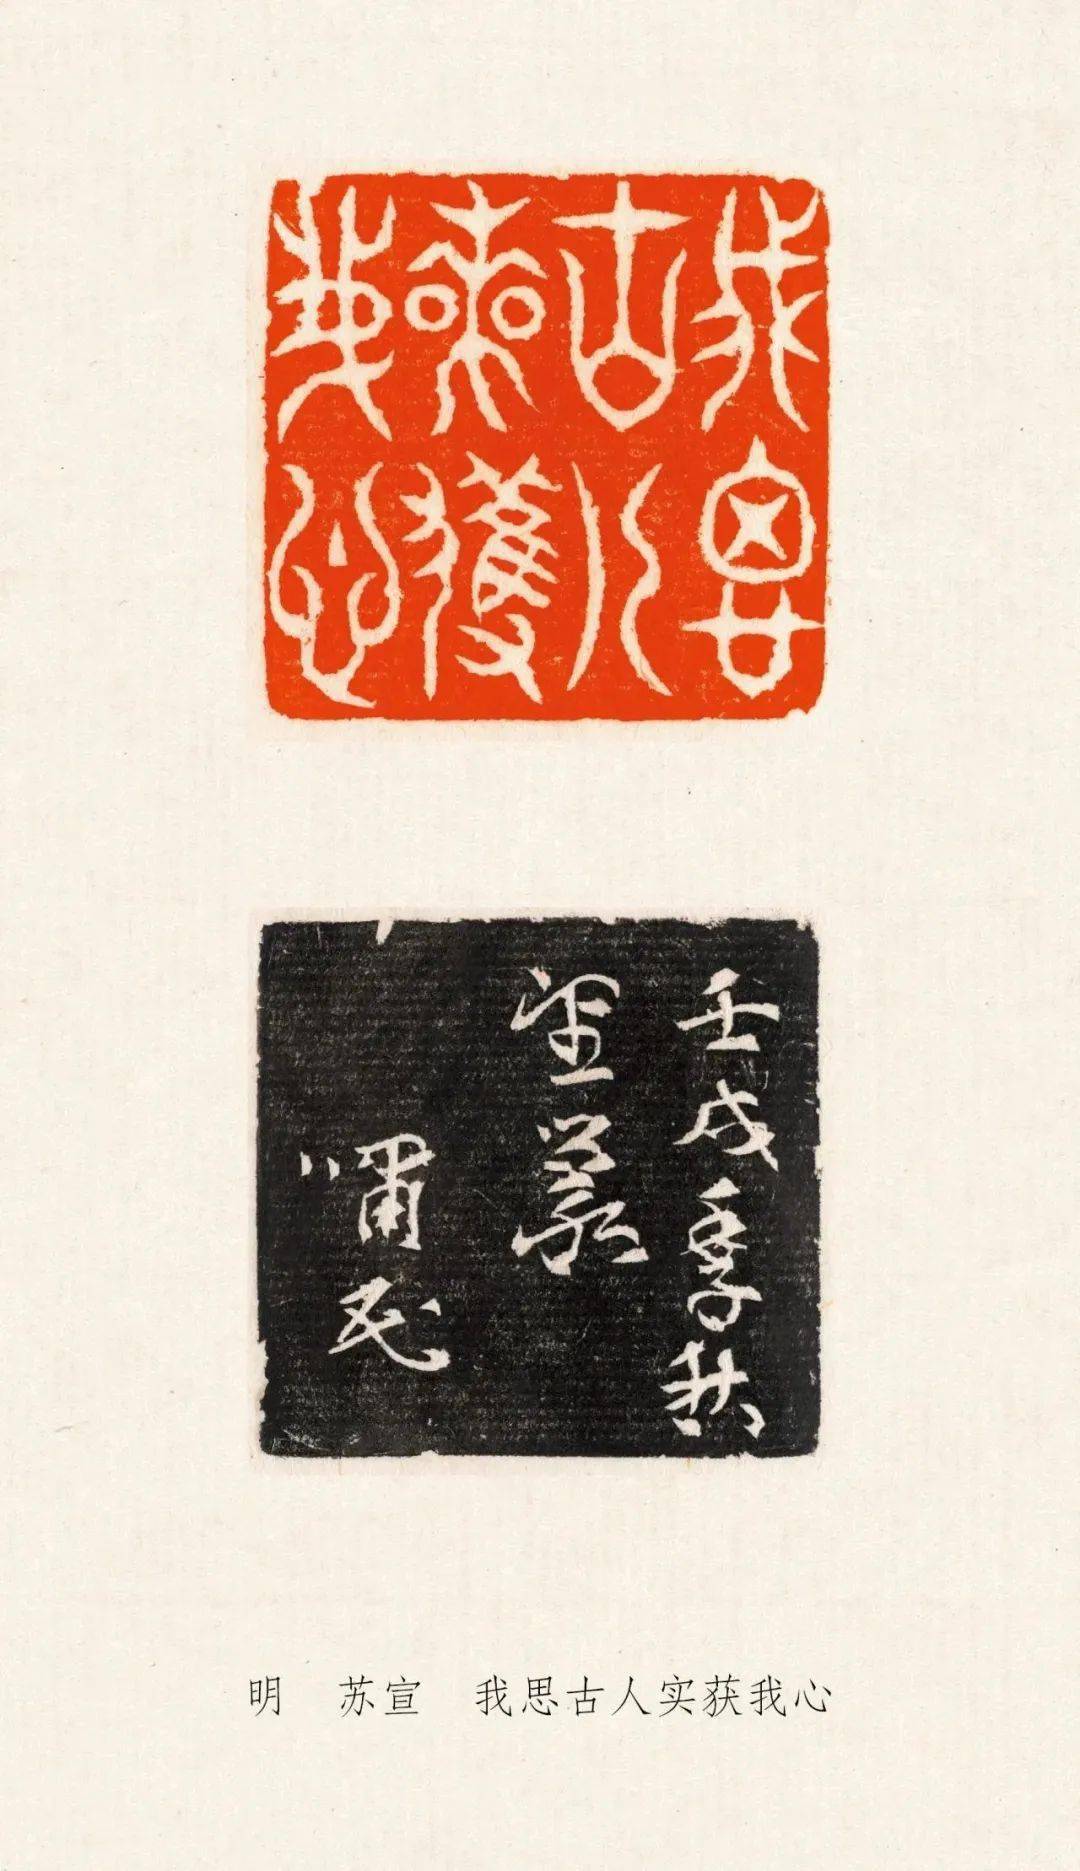 我思
古人
實獲
我心
壬戌季秋
望篆
嘯民
明　苏宣　我思古人实获我心